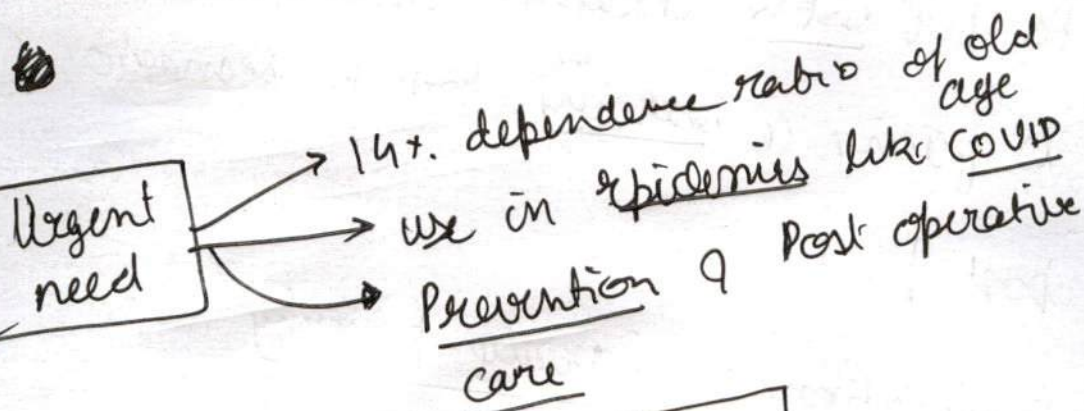 Urgent
need
14%. dependence ratio of old
age
use in epidemics like COVID
Prevention & Post operative
care